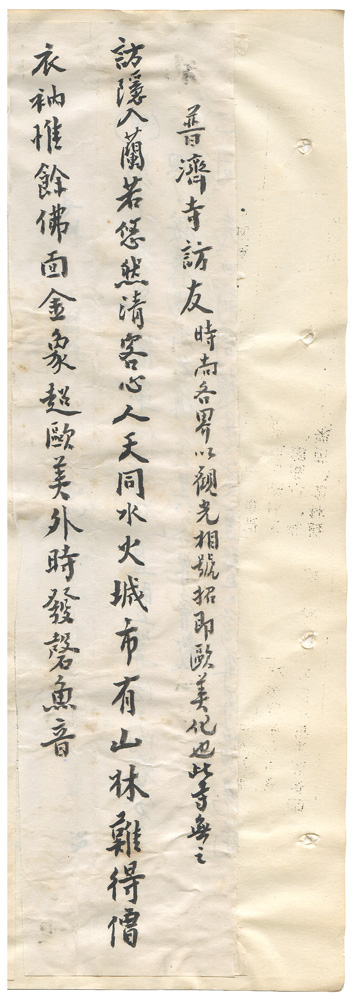 普濟寺訪友時尚各界以觀光相號招即歐美化也此寺無之
訪隱入蘭若悠然清客心人天同水火城市有山林難得僧
衣衲惟餘佛面金象超歐美外時發磬魚音